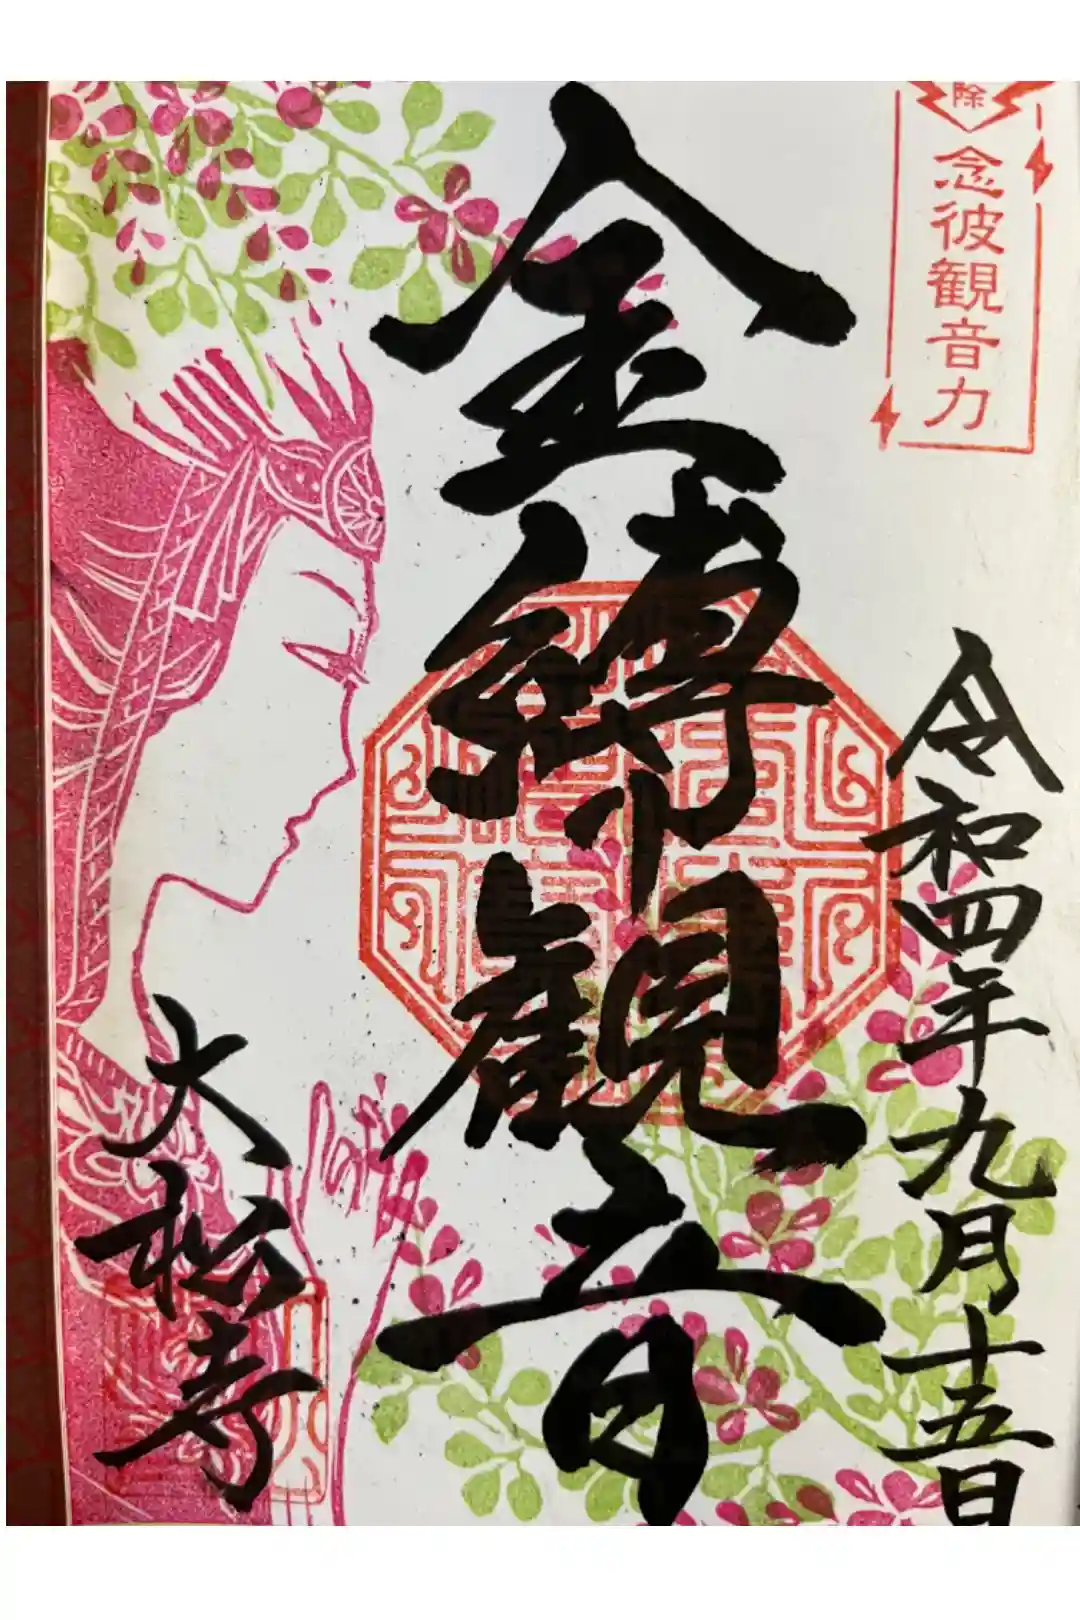 除
念彼観音力
令和四年九月十五日
金縛観音
大松寺